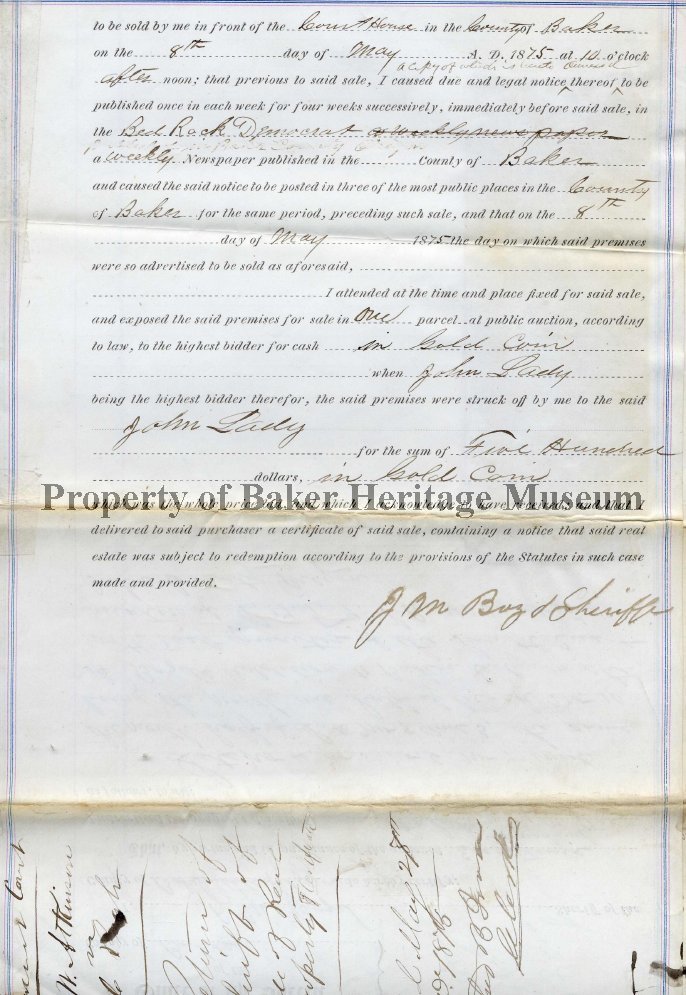 to be sold by me in front of the Court House in the County of Baker
on the 8th day of May A. D. 1875 at 10 o'clock
a copy of which is hereto annexed
after noon; that previous to said sale, I caused due and legal notice thereof to be
published once in each week for four weeks successively, immediately before said sale, in
the Bed Rock Democrat a weekly news paper
a weekly Newspaper published in the County of Baker
and caused the said notice to be posted in three of the most public places in the County
of Baker for the same period, preceding such sale, and that on the 8th
day of May 1875 the day on which said premises
were so advertised to be sold as aforesaid,
I attended at the time and place fixed for said sale,
and exposed the said premises for sale in One parcel at public auction, according
to law, to the highest bidder for cash in Gold Coin
when John Lady
being the highest bidder therefor, the said premises were struck off by me to the said
John Lady
for the sum of Five Hundred
dollars, in Gold Coin
Property of Baker Heritage Museum
which was the whole price bid, and which I acknowledge to have received; and that I
delivered to said purchaser a certificate of said sale, containing a notice that said real
estate was subject to redemption according to the provisions of the Statutes in such case
made and provided.
J M Boyd Sheriff
Court
W. Atkinson
Return of
Sheriff of
of Real
property
May 28th
1875
Clerk